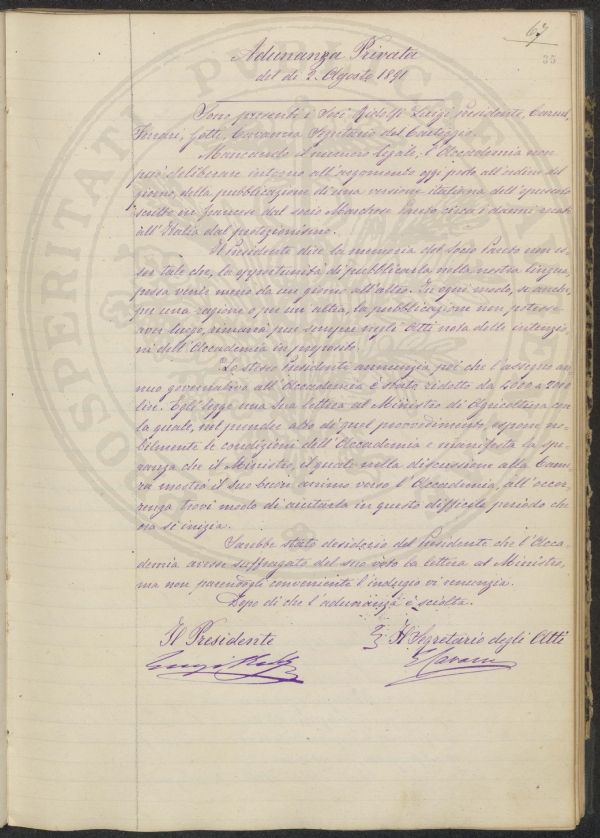 67
35
Adunanza Privata
del dì 2. Agosto 1891
Sono presenti i Soci Ridolfi Luigi Presidente,
Ferrari, Segretario del Carteggio.
Mancando il numero legale, l'Accademia non
può deliberare intorno all'argomento oggi posto all'ordine del
giorno, della pubblicazione di una versione italiana dell'opuscolo
scritto in francese dal socio Marchese Pareto circa i danni recati
all'Italia dal protezionismo.
Il Presidente dice la memoria del Socio Pareto non es-
ser tale che, la opportunità di pubblicarla nella nostra lingua,
possa venir meno da un giorno all'altro. In ogni modo, se anche,
per una ragione o per un'altra, la pubblicazione non potesse
aver luogo, rimarrà pur sempre negli Atti nota delle intenzio-
ni dell'Accademia in proposito.
Lo stesso Presidente annunzia poi che l'assegno an-
nuo governativo all'Accademia è stato ridotto da 4000 a 2000
lire. Egli legge una sua lettera al Ministro di Agricoltura con
la quale, nel prender atto di quel provvedimento, espone no-
bilmente le condizioni dell'Accademia e manifesta la spe-
ranza che il Ministro, il quale nella discussione alla Came-
ra mostrò il suo buon animo verso l'Accademia, all'occor-
renza trovi modo di aiutarla in questo difficile periodo che
ora si inizia.
Sarebbe stato desiderio del Presidente che l'Acca-
demia avesse suffragato del suo voto la lettera al Ministro,
ma non parendogli conveniente l'indugio vi renunzia.
Dopo di che l'adunanza è sciolta.
Il Presidente
Il Segretario degli Atti
PROSPERITATI PUBLICAE AUGENDAE